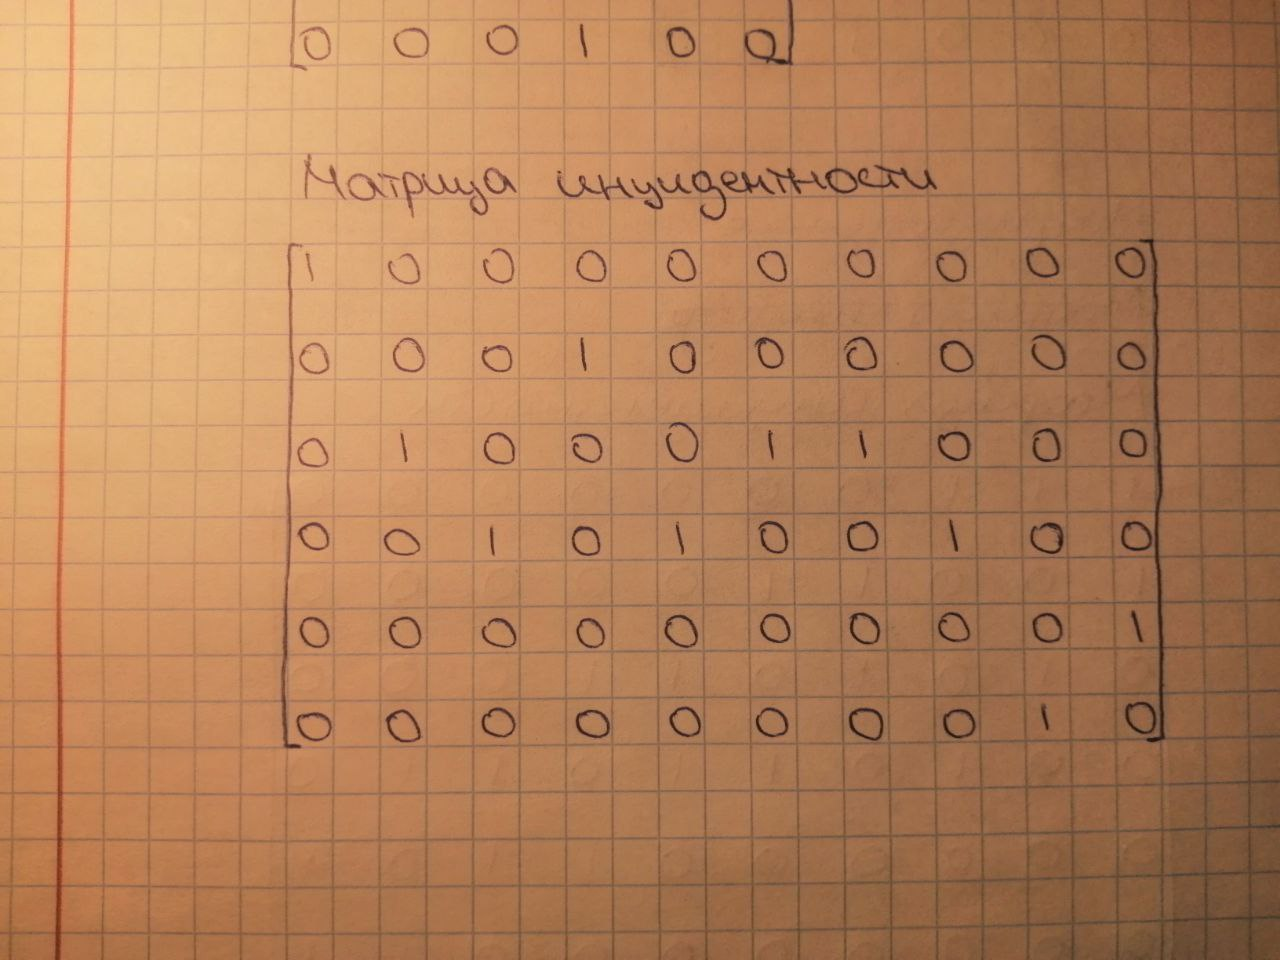 0 0 0 1 0 0
Матрица инцидентности
1 0 0 0 0 0 0 0 0 0
0 0 0 1 0 0 0 0 0 0
0 1 0 0 0 1 1 0 0 0
0 0 1 0 1 0 0 1 0 0
0 0 0 0 0 0 0 0 0 1
0 0 0 0 0 0 0 0 1 0